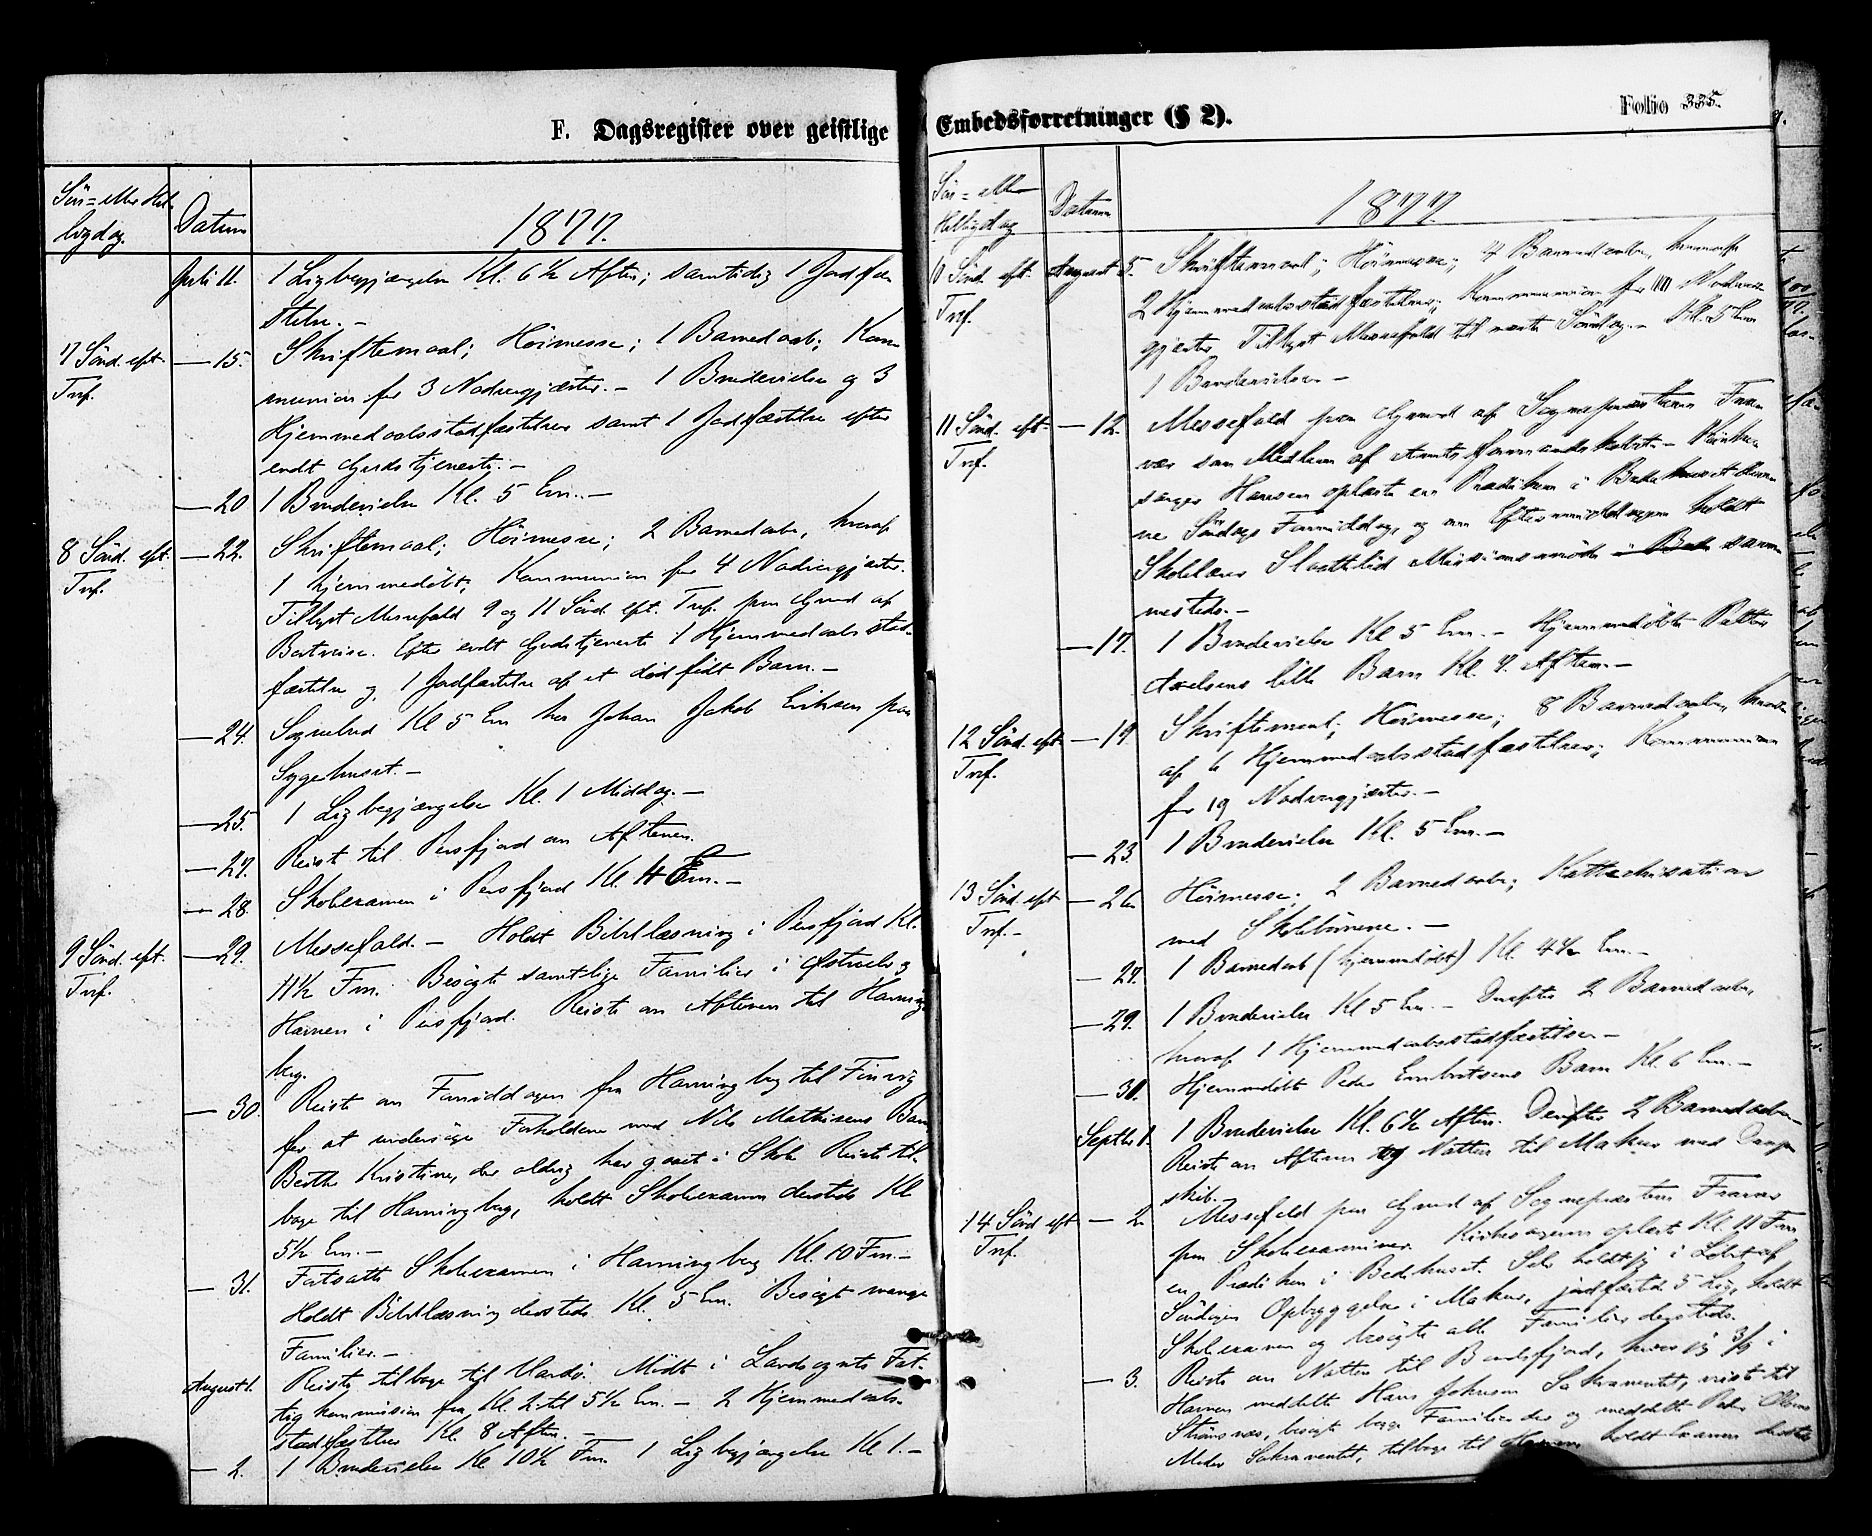 F. Dagsregister over geistlige
Søn- eller Hel-
ligdag.
Datum
1877.
Juli 11. 1 Ligbegjængelse Kl. 6½ Aften; samtidig 1 Jordfæ-
stelse. –
7 Sønd. eft. Tref. – 15. Skriftemaal; Høimesse; 1 Barnedaab; Kom-
munion for 3 Nadvergjæster. – 1 Brudevielse og 3
Hjemmedaabsstadfæstelser samt 1 Jordfæstelse efter
endt Gudstjeneste. –
– 20 1 Brudevielse Kl. 5 Em. –
8 Sønd. eft. Tref. – 22. Skriftemaal; Høimesse; 2 Barnedaab, hvoraf
1 hjemmedøbt; Kommunion for 4 Nadvergjæster.
Tillyst Messefald 9 og 11 Sønd. eft. Tref. paa Grund af
Bortreise. Efter endt Gudstjeneste 1 Hjemmedaabsstad-
fæstelse og 1 Jordfæstelse af et dødfødt Barn. –
– 24. Sognebud Kl 5 Em hos Johan Jakob Eriksen paa
Sygehuset. –
– 25. 1 Ligbegjængelse Kl. 1 Middag. –
– 27. Reist til Persfjord om Aftenen.
– 28. Skoleexamen i Persfjord Kl. 4 Em. –
9 Sønd. eft. Tref. – 29. Messefald. – Holdt Bibellæsning i Persfjord Kl.
11½ Fm. Besøgt samtlige Familier i og
Havnen i Persfjord. Reiste om Aftenen til Havning-
berg.
– 30. Reiste om Formiddagen fra Havningberg til Finvig
for at undersøge Forholdene med Nils Mathisens Barn
Berthe Kristine, der aldrig har gaaet i Skole. Reiste til-
bage til Havningberg, holdt Skoleexamen dersteds Kl
5½ Em. –
– 31. Fortsatte Skoleexamen i Havningberg Kl. 10 Fm. –
Holdt Bibellæsning dersteds Kl. 5 Em. Besøgt mange
Familier. –
August 1. Reiste tilbage til Vardø. Mødt i Landsognets Fat-
tigkommision fra Kl. 2 til 5½ Em. – 2 Hjemmedaabs-
stadfæstelser Kl. 8 Aften. –
– 2. 1 Brudevielse Kl 10½ Fm. 1 Ligbegjængelse Kl 1. –
Embedsforretninger (§ 2).
Folio 335.
Søn- eller
Helligdag
Datum
1877.
10 Sønd. eft. Tref. August 5. Skriftemaal; Høimesse; 4 Barnedaab, hvoraf
2 Hjemmedaabsstadfæstelser; Kommunion for Nadver-
gjæster. Tillyst Messefald til næste Søndag. – Kl. 5 Em
1 Brudevielse –
11 Sønd. eft. Tref. – 12. Messefald paa Grund af Sognepræstens Fra-
vær som Medlem af Amtsformandskabet. – Kirke-
sanger Hansen oplæste en Prædiken i Bedehuset den-
ne Søndags Formiddag, og om Eftermiddagen holdt
Skolelærer Slaattelid Missionsmøde samme-
steds. –
– 17. 1 Brudevielse Kl 5 Em. – Hjemmedøbte
Axelsens lille Barn Kl. 7. Aften. –
12 Sønd. eft Tref. – 19 Skriftemaal; Høimesse; 8 Barnedaab, hvor-
af 6 Hjemmedaabsstadfæstelser; Kommunion
for 19 Nadvergjæster. –
– 23. 1 Brudevielse Kl. 5 Em. –
13 Sønd. eft Tref. – – 26. Høimesse; 2 Barnedaab; Kattechisation
med Skolebørnene. –
– 27. 1 Barnedaab (hjemmedøbt) Kl. 4½ Em. –
– 29. 1 Brudevielse Kl 5 Em. – Derefter 2 Barnedaab,
hvoraf 1 Hjemmedaabsstadfæstelse –
– 30. Hjemmedøbt Peder Barn Kl. 6 Em. –
Septbr 1. 1 Brudevielse Kl. 6½ Aften. Derefter 2 Barnedaab. –
Reiste om Aftenen og Natten til Makur med Damp-
skib.
14 Sønd eft Tref. – 2. Messefald paa Grund af Sognepræstens Fravær
paa Skoleexaminer. Kirkesangeren oplæste Kl. 11 Fm
en Prædiken i Bedehuset. Selv holdt jeg i Løbet af
Søndagen Opbyggelse i Makur, jordfæstede 5 Lig, holdt
Skoleexamen og besøgte alle Familier dersteds.
– 3. Reiste om Natten til Baadsfjord, hvor jeg 3/9 i
Havnen meddelte Hans Johnsen Sakramentet, reiste til
Strømsnæs, besøgte begge Familier der og meddelte Peder Olsens
Moder Sakramentet, tilbage til Havnen, holdt Examen